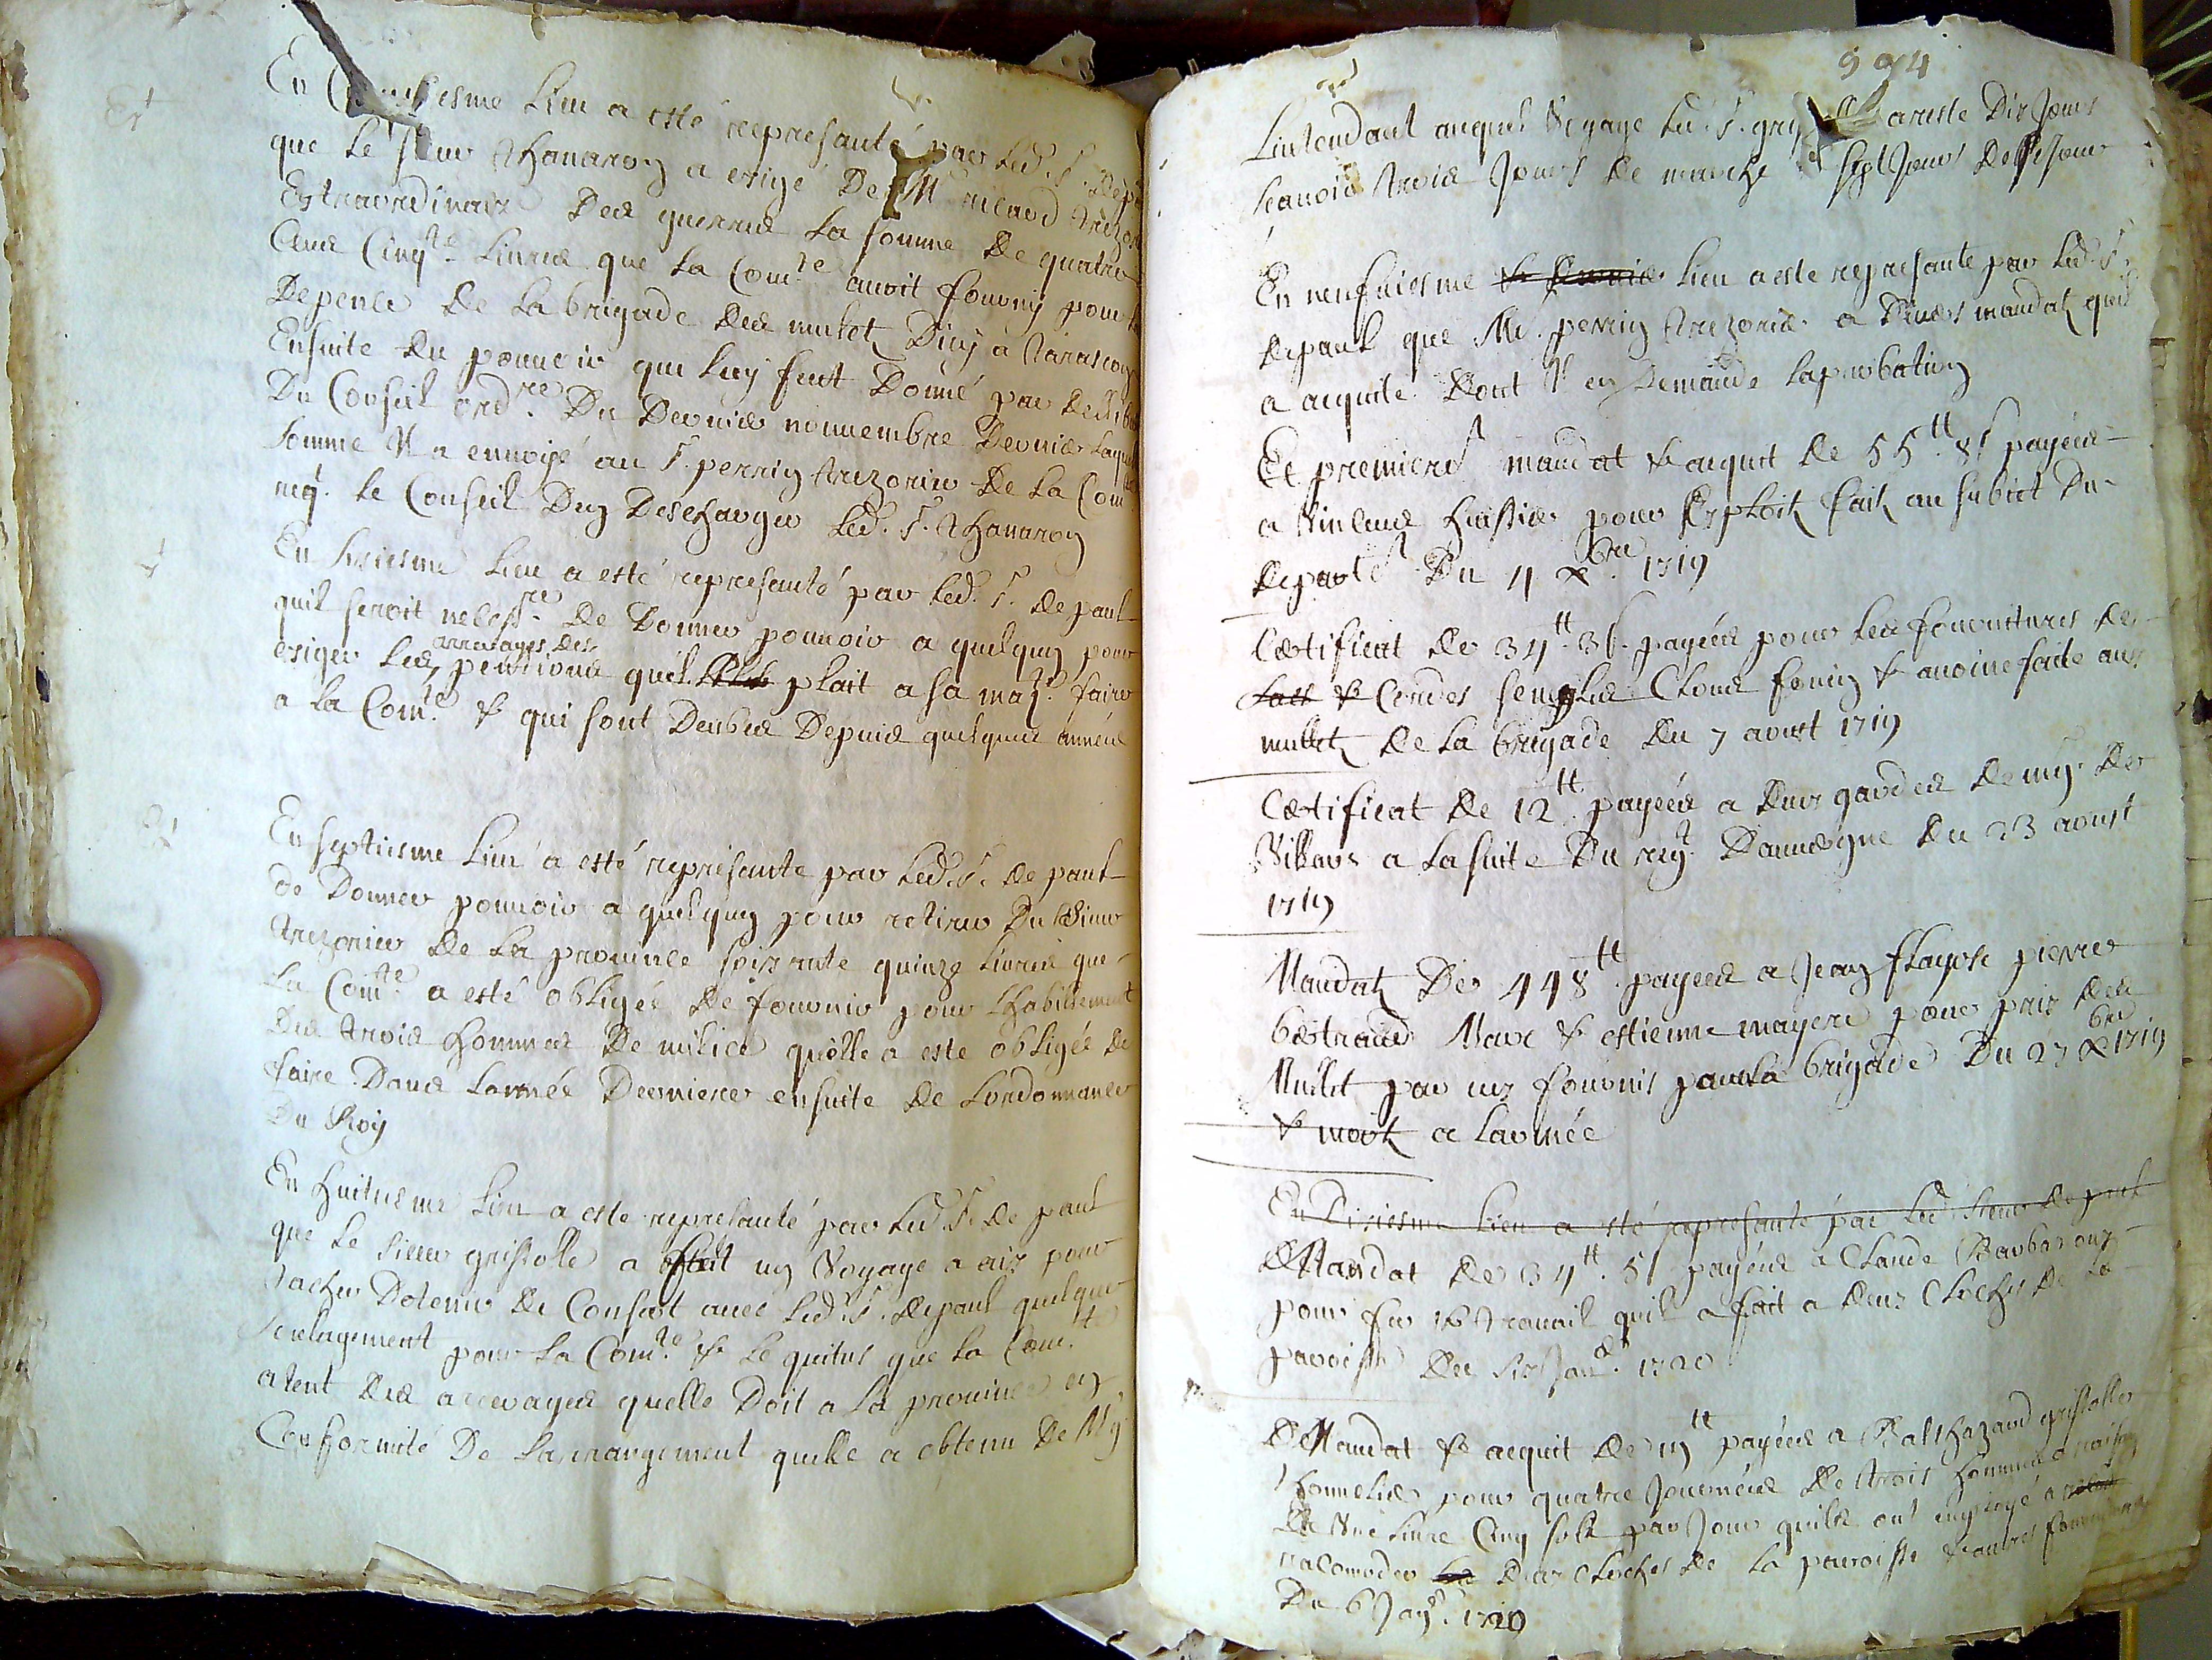 En esme lieu a esté represanté par led. s. depa
que le sieur Thanaron a exigé de Mr ricard trezor
Extraordinaire des guerres la somme de quatre
Cens Cinqte. Livres que la Comte. auoit fourny pour la
Depence de La brigade des mulets Dicy à Tarascon
Ensuite du pouuoir que luy fust Donné par delib
Du Conseil ordre. Du Dernier nouuembre Dernier Laque
somme Il a enuoyé au s. perrin trezorier de La Comte
req. le Conseil Den Descharger led. s. Thanaron
En sixiesme lieu a esté represanté par led. s. de paul
quil seroit necessre. de Donner pouuoir a quelqun pour
exiger les arrerages des pentions quil plait a sa maj. faire
a la Comte. & qui sont Deubes Depuis quelques année
En septiesme lieu a esté représante par led. s. de paul
de Donner pouuoir a quelqun pour retirer Du sieur
trezorier de La prouince soixante quinze liures que
La Comte. a esté obligée de fournir pour Lhabillement
des trois hommes de milice quelle a este obligée de
faire Dans Lannée Derniere ensuite de Lordonnance
Du Roy
En huitiesme lieu a este represanté par led. s. de paul
que le sieur grissolle a fait un Voyage a aix pour
tacher Dotenir de Consert auec led. s. depaul quelque
soulagement pour la Comte. & le quitus que la Comte
atent des arrerages quelle Doit a La prouince en
Conformité De Larrangement quelle a obtenu De Mg
994
Lintendant auquel Voyage led. s. gris areste Dix Jours
scauoir trois Jours de marche & sept Jours de sejour
En neufuiesme lieu a este represante par led. s.
depaul que Mr. perrin trezorier a Diuers mandats quil
a acquité Dont Il en Demande Laprobation
Et premiere mandat & acquit de 55tt. 8s payées
a Vincens huissier pour Exploits faits au subiet Du
Du 4 xbre. 1719
Certificat de 34tt. 3s. payées pour les fournitures de
& Cordes Clous foin & auoine faite aux
mullets de La brigade du 7 aoust 1719
Certificat de 12tt. payées a deux gardes de mg. de
Villars a Lasuite Du regt. Dauuergne du 23 aoust
1719
Mandats De 448tt. payées a Jean flayosc pierre
bertrand Marc & estienne mayere pour prix des
Mullet par eux fournis pour La brigade Du 27 xbre 1719
& morts a Larmée
En Dixiesme lieu a esté represanté par led. sieur de paul
Mandat de 34tt. 5s payées a Claude Barbaroux
pour le trauail quil a fait a deux Cloches de La
paroisse du six Janr. 1720
Mandat & acquit de payées a Balthazard grissolle
pour quatre Journées de trois hommes a raison
de Vne liure Cinq sols par Jour quils ont employé a
racomoder Deux Cloches de La paroisse & autres
Du 6 Janr. 1720